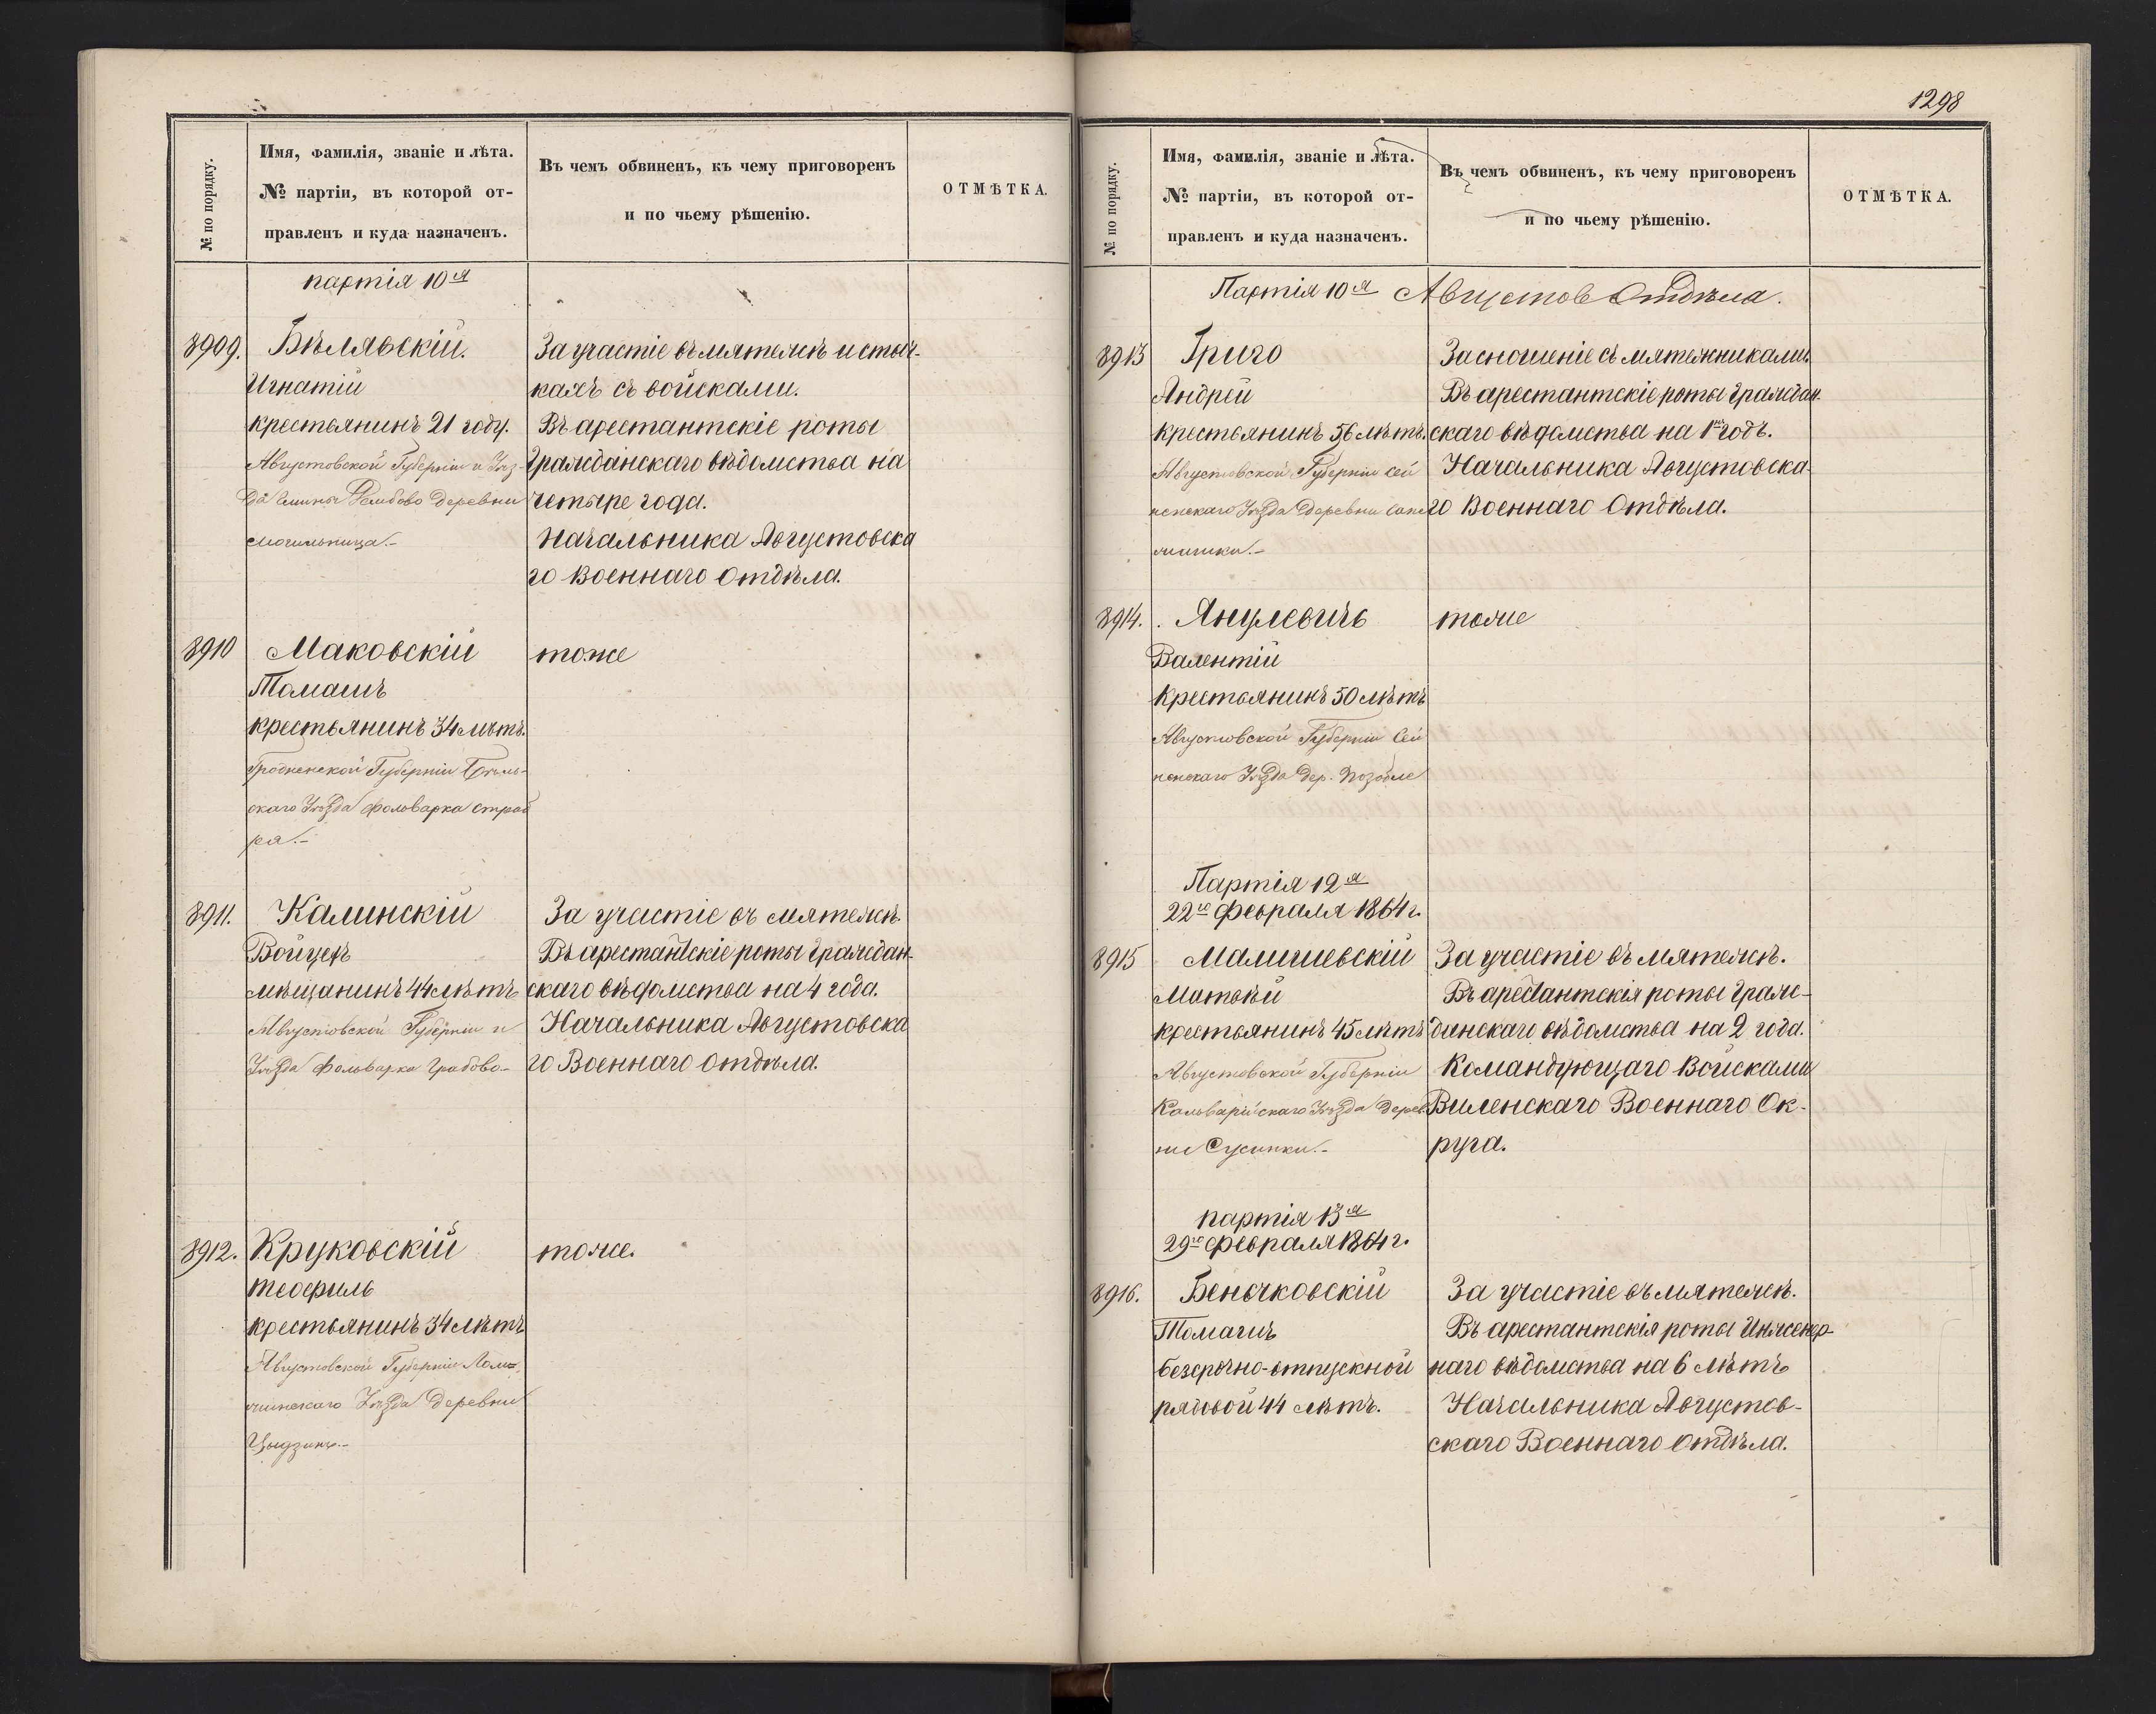 № по порядку.
Имя, фамилія, званіе и лѣта.
№ партіи, въ которой от-
правленъ и куда назначенъ.
Въ чемъ обвиненъ, къ чему приговоренъ
и по чьему рѣшенію.
ОТМѢТКА.
партія 10я
8909.
Бѣлявскій.
Игнатій
крестьянинъ 21 году.
Августовской Губерніи и Уѣз-
да Гмины Рембово деревни
Могильница.-
За участіе въ мятежѣ и стыч-
кахъ съ войсками.
Въ арестантскіе роты
Гражданскаго вѣдомства на
четыре года.
Начальника Августовска
го Военнаго Отдѣла.
8910
Маковскій
Томашъ
крестьянинъ 34 лѣтъ.
Гродненской Губерніи Бѣль-
скаго Уѣзда фольварка
тоже
8911.
Калинскій
Войцехъ
мѣщанинъ 44 лѣтъ
Августовской Губерніи и
Уѣзда Фольварка Грабово-
За участіе въ мятежѣ.
Въ арестантскіе роты граждан-
скаго вѣдомства на 4 года.
Начальника Августовска
го Военнаго Отдѣла.
8912.
Круковскій
Теофиль
крестьянинъ 34 лѣтъ
Августовской Губерніи Лом-
жинскаго Уѣзда деревни
тоже.
1298
№ по порядку.
Имя, фамилія, званіе и лѣта.
№ партіи, въ которой от-
правленъ и куда назначенъ.
Въ чемъ обвиненъ, къ чему приговоренъ
и по чьему рѣшенію.
ОТМѢТКА.
Партія 10я Августов Отдѣла.
8913
Григо
Андрей
крестьянинъ 56 лѣтъ.
Августовской Губерніи Сей
ненскаго Уѣзда Деревни
За сношеніе съ мятежниками.
Въ арестантскіе роты граждан-
скаго вѣдомства на 1 годъ.
Начальника Августовска-
го Военнаго Отдѣла.
8914.
Янулевичъ
Валентій
Крестьянинъ 50 лѣтъ
Августовской Губерніи Сей
ненскаго Уѣзда дер.
тоже
Партія 12я
22го февраля 1864 г.
8915
Малишевскій
Матвѣй
крестьянинъ 45 лѣтъ
Августовской Губерніи
Кальварійскаго Уѣзда Дерев
ни Сусники.-
За участіе въ мятежѣ.
Въ арестантскія роты граж-
данскаго вѣдомства на 2 года.
Командующаго Войсками
Виленскаго Военнаго Ок-
руга.
партія 13я
29го февраля 1864 г.
8916.
Беньчковскій
Томашъ
безсрочно-отпускной
рядовой 44 лѣтъ.
За участіе въ мятежѣ.
Въ арестантскія роты Инженер-
наго вѣдомства на 6 лѣтъ
Начальника Августов-
скаго Военнаго Отдѣла.